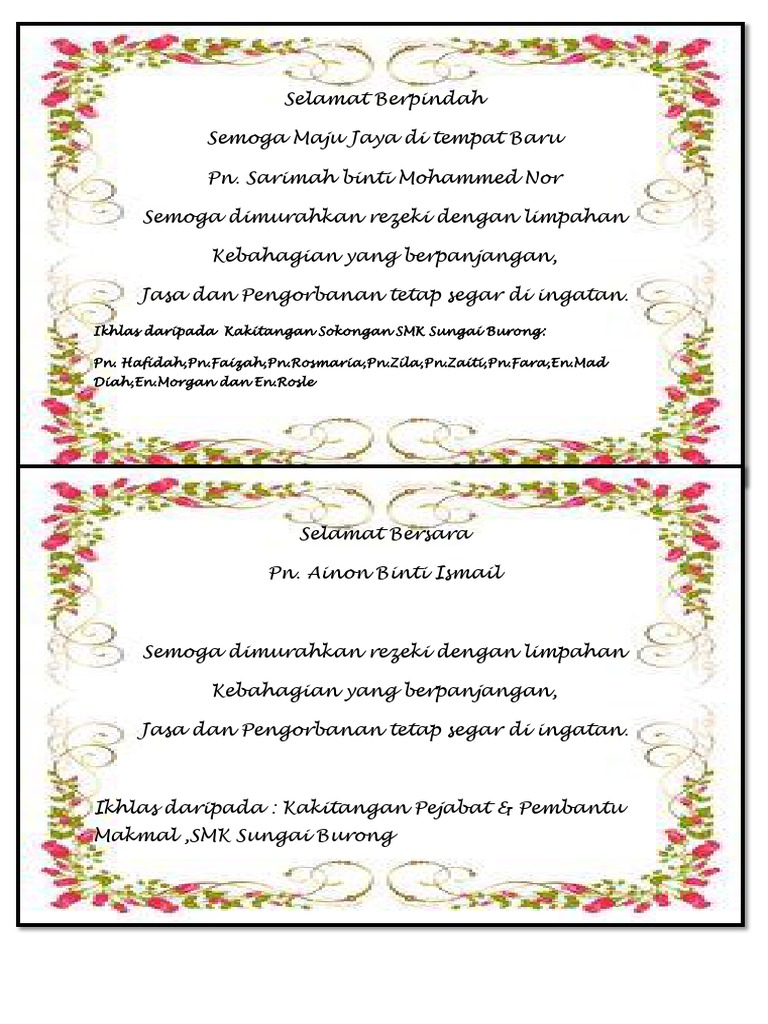 Selamat Berpindah
Semoga Maju Jaya di tempat Baru
Pn. Sarimah binti Mohammed Nor
Semoga dimurahkan rezeki dengan limpahan
Kebahagian yang berpanjangan,
Jasa dan Pengorbanan tetap segar di ingatan.
Ikhlas daripada Kakitangan Sokongan SMK Sungai Burong:
Pn. Hafidah,Pn.Faizah,Pn.Rosmaria,Pn.Zila,Pn.Zaiti,Pn.Fara,En.Mad
Diah,En.Morgan dan En.Rosle
Selamat Bersara
Pn. Ainon Binti Ismail
Semoga dimurahkan rezeki dengan limpahan
Kebahagian yang berpanjangan,
Jasa dan Pengorbanan tetap segar di ingatan.
Ikhlas daripada : Kakitangan Pejabat & Pembantu
Makmal ,SMK Sungai Burong